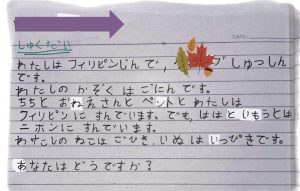 DATE
しゅくだい
わたしは フィリピンじんで, ブ しゅっしん
です。
わたしの かぞくは ごにんです。
ちちと おねえさんと ペットと わたしは
フィリピンに すんでいます。でも, ははと いもうとは
ニホンに すんでいます。
わたしの ねこは ごひき, いぬは いっぴきです。
あなたは どうですか?